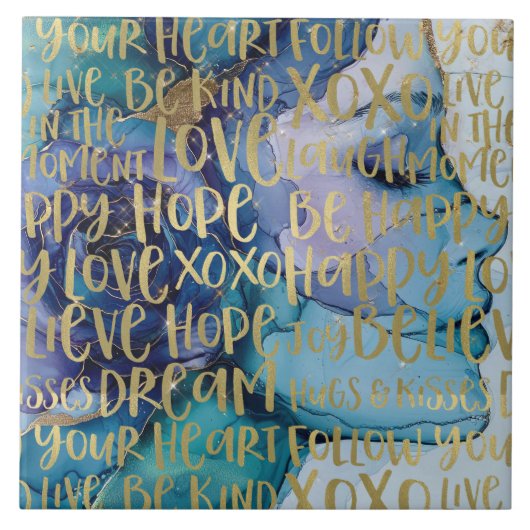 YOUR HEART FOLLOW YOU
O LIVE BE KIND XOXO LIVE
IN THE LOVE LAUGH IN THE
MOMENT MOME
PPY HOPE BE HAPPY
Y LOVE XOXO HAPPY LO
LIEVE HOPE JOY BELIEV
ISSES DREAM HUGS & KISSES D
YOUR HEART FOLLOW YOU
O LIVE BE KIND XOXO LIVE